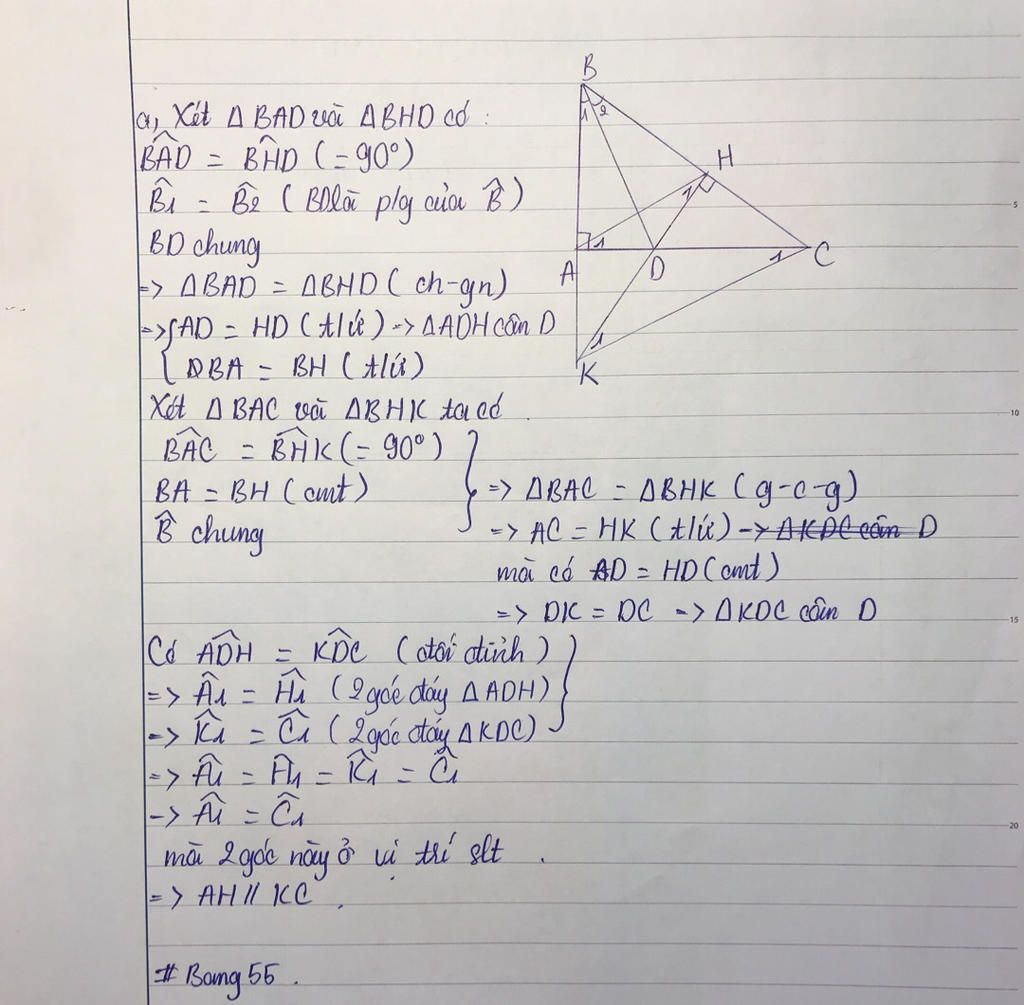 a, Xét Δ BAD và Δ BHD có :
B̂AD = B̂HD ( = 90°)
B̂1 = B̂2 ( BD là p/g của B̂ )
BD chung
=> Δ BAD = Δ BHD ( ch-gn)
=> { AD = HD ( t/ứ ) -> Δ ADH cân D
BA = BH ( t/ứ )
Xét Δ BAC và Δ BHK ta có
B̂AC = B̂HK (= 90°)
BA = BH ( cmt )
B̂ chung
=> Δ BAC = Δ BHK ( g-c-g)
=> AC = HK ( t/ứ ) -> Δ KDC cân D
mà có AD = HD (cmt)
=> DK = DC -> Δ KDC cân D
Có ÂDH = K̂DC ( đối đỉnh )
=> Â1 = Ĥ1 ( 2 góc đáy Δ ADH)
-> K̂1 = Ĉ1 ( 2 góc đáy Δ KDC)
=> Â1 = Ĥ1 = K̂1 = Ĉ1
-> Â1 = Ĉ1
mà 2 góc này ở vị trí slt .
=> AH // KC .
# Bang 55 .
B
1 2
H
1
A
1
D
1
C
1
K
5
10
15
20